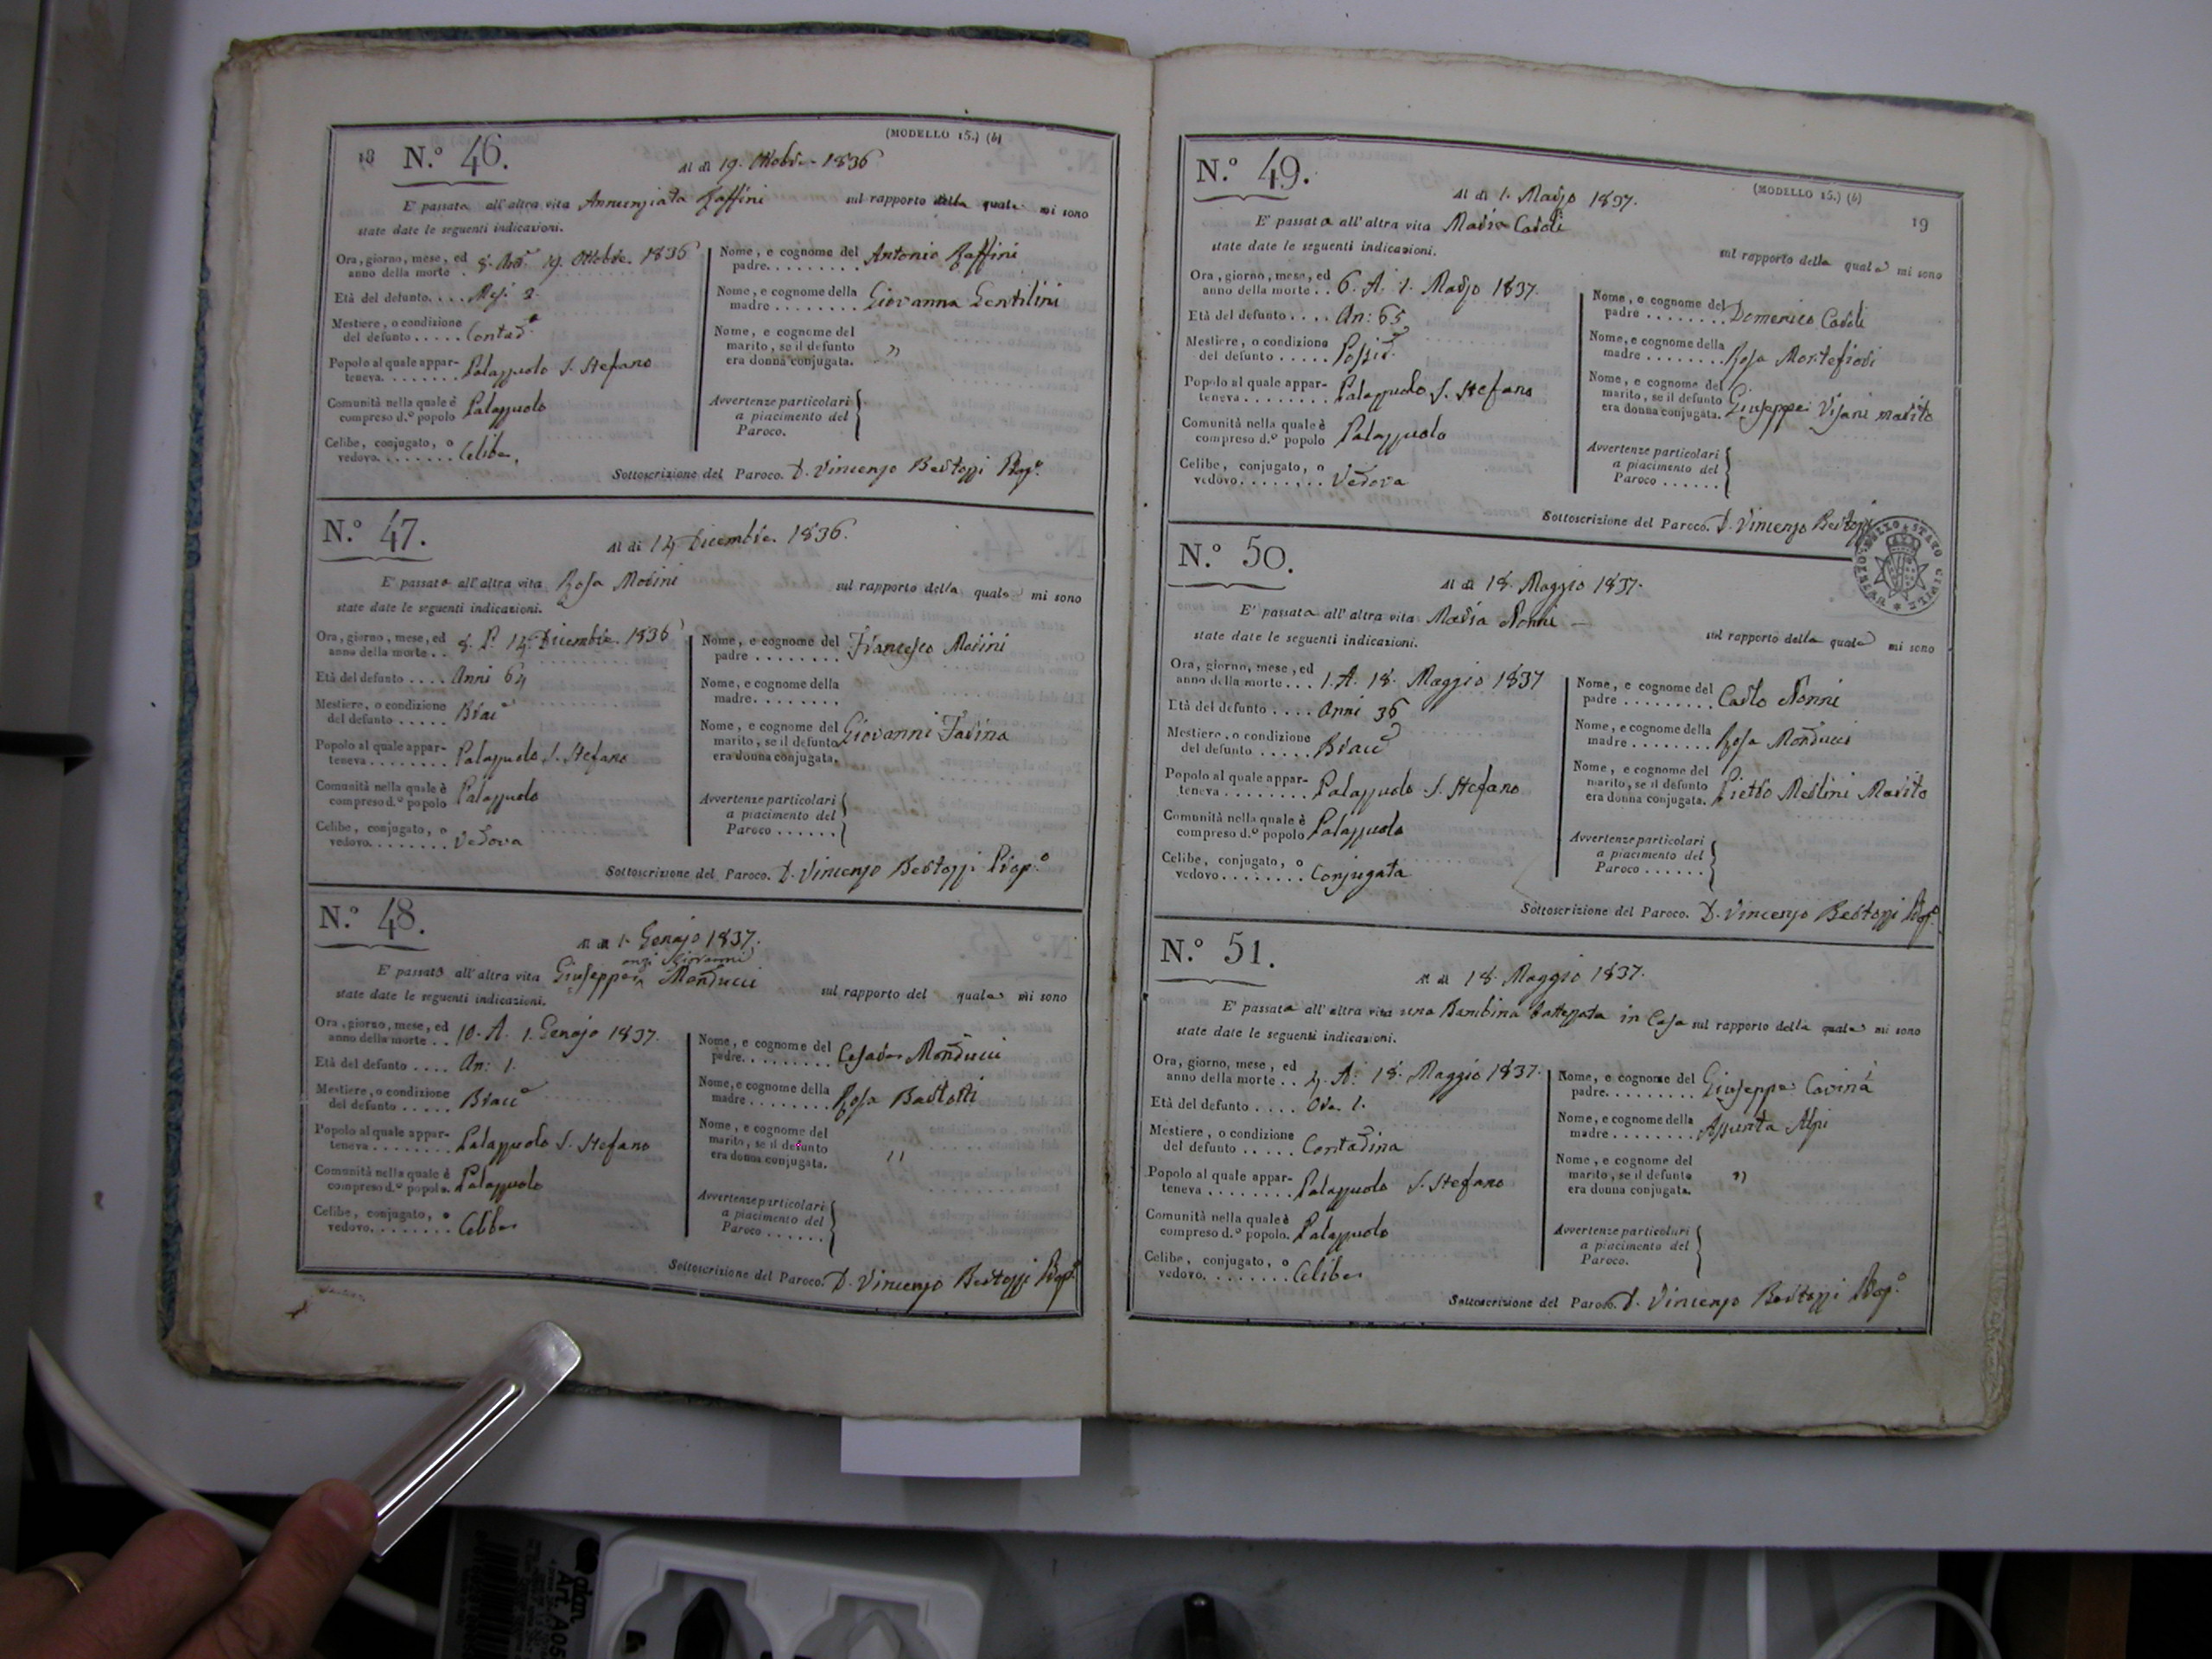 18
N.° 46.
(MODELLO 15.) (b)
Al dì 19. Ottobre 1836
E' passata all'altra vita Annunziata Raffini sul rapporto della quale mi sono
state date le seguenti indicazioni.
Ora, giorno, mese, ed
anno della morte . 8. 19. Ottobre. 1836
Età del defunto.... Mesi 2.
Mestiere, o condizione
del defunto ..... Contad.a
Popolo al quale appar-
teneva........ Palazzuolo S. Stefano
Comunità nella quale è
compreso d.° popolo Palazzuolo
Celibe, conjugato, o
vedovo........ Celibe,
Nome, e cognome del
padre......... Antonio Raffini
Nome, e cognome della
madre ........ Giovanna Gentilini
Nome, e cognome del
marito, se il defunto
era donna conjugata. "
Avvertenze particolari
a piacimento del
Paroco.
Sottoscrizione del Paroco. D. Vincenzo Bertozzi Prop.°
N.° 47.
Al dì 14 Dicembre 1836.
E' passata all'altra vita Rosa Morini sul rapporto della quale mi sono
state date le seguenti indicazioni.
Ora, giorno, mese, ed
anno della morte .. 8. P. 14. Dicembre. 1836
Età del defunto .... Anni 64
Mestiere, o condizione
del defunto ..... Brac.e
Popolo al quale appar-
teneva........ Palazzuolo S. Stefano
Comunità nella quale è
compreso d.° popolo Palazzuolo
Celibe, conjugato, o
vedovo........ Vedova
Nome, e cognome del
padre ........ Francesco Morini
Nome, e cognome della
madre........
Nome, e cognome del
marito, se il defunto
era donna conjugata. Giovanni Farina
Avvertenze particolari
a piacimento del
Paroco ......
Sottoscrizione del Paroco. D. Vincenzo Bertozzi Prop.°
N.° 48.
Al dì 1. Genajo 1837.
anzi Giovanni
E' passato all'altra vita Giuseppe Monducci sul rapporto del quale mi sono
state date le seguenti indicazioni.
Ora, giorno, mese, ed
anno della morte .. 10. A. 1. Genajo 1837.
Età del defunto .... An: 1.
Mestiere, o condizione
del defunto ..... Brac.e
Popolo al quale appar-
teneva........ Palazzuolo S. Stefano
Comunità nella quale è
compreso d.° popolo. Palazzuolo
Celibe, conjugato, o
vedovo........ Celibe
Nome, e cognome del
padre........ Cesare Monducci
Nome, e cognome della
madre ........ Rosa Bartolti
Nome, e cognome del
marito, se il defunto
era donna conjugata. "
Avvertenze particolari
a piacimento del
Paroco ......
Sottoscrizione del Paroco. D. Vincenzo Bertozzi Prop.°
N.° 49.
(MODELLO 15.) (b)
19
Al dì 1. Marzo 1837.
E' passata all'altra vita Maria Caroli
sul rapporto della quale mi sono
state date le seguenti indicazioni.
Ora, giorno, mese, ed
anno della morte .. 6. A. 1. Marzo 1837.
Età del defunto .... An: 65
Mestiere, o condizione
del defunto ..... Possid.e
Popolo al quale appar-
teneva........ Palazzuolo S. Stefano
Comunità nella quale è
compreso d.° popolo Palazzuolo
Celibe, conjugato, o
vedovo........ Vedova
Nome, e cognome del
padre ........ Domenico Caroli
Nome, e cognome della
madre ........ Rosa Montefiori
Nome, e cognome del
marito, se il defunto
era donna conjugata. Giuseppe Visani marito
Avvertenze particolari
a piacimento del
Paroco ......
Sottoscrizione del Paroco. D. Vincenzo Bertozzi
N.° 50.
Al dì 18. Maggio 1837.
E' passata all'altra vita Maria Nonni
sul rapporto della quale mi sono
state date le seguenti indicazioni.
Ora, giorno, mese, ed
anno della morte ... 1. A. 18. Maggio 1837
Età del defunto .... Anni 36
Mestiere, o condizione
del defunto ..... Brac.e
Popolo al quale appar-
teneva........ Palazzuolo S. Stefano
Comunità nella quale è
compreso d.° popolo Palazzuolo
Celibe, conjugato, o
vedovo........ Conjugata
Nome, e cognome del
padre ......... Carlo Nonni
Nome, e cognome della
madre ........ Rosa Monducci
Nome, e cognome del
marito, se il defunto
era donna conjugata. Pietro Merlini Marito
Avvertenze particolari
a piacimento del
Paroco ......
Sottoscrizione del Paroco. D. Vincenzo Bertozzi Prop.°
N.° 51.
Al dì 18. Maggio 1837.
E' passata all'altra vita una Bambina battezzata in Casa sul rapporto della quale mi sono
state date le seguenti indicazioni.
Ora, giorno, mese, ed
anno della morte .. 4. A. 18. Maggio 1837.
Età del defunto .... Ora 1.
Mestiere, o condizione
del defunto ..... Contadina
Popolo al quale appar-
teneva ........ Palazzuolo S. Stefano
Comunità nella quale è
compreso d.° popolo. Palazzuolo
Celibe, conjugato, o
vedovo........ Celibe
Nome, e cognome del
padre......... Giuseppe Cavina
Nome, e cognome della
madre ........ Assunta Alpi
Nome, e cognome del
marito, se il defunto
era donna conjugata. "
Avvertenze particolari
a piacimento del
Paroco.
Sottoscrizione del Paroco. D. Vincenzo Bertozzi Prop.°
Art. A05